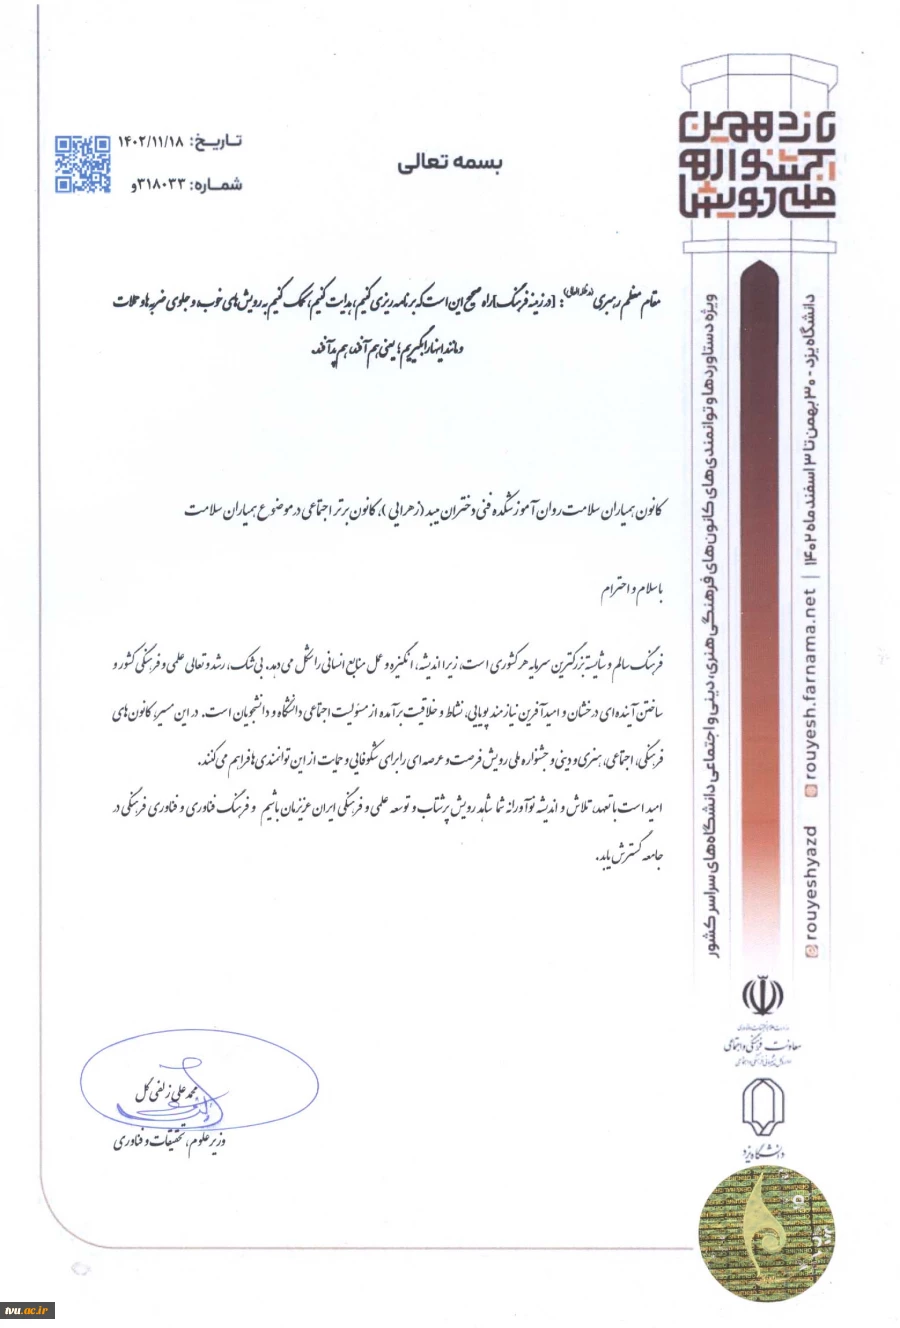 یازدهمین
جشنواره
ملی رویش
بسمه تعالی
تاریخ: ۱۴۰۲/۱۱/۱۸
شماره: ۳۱۸۰۳۳/و
مقام معظم رهبری (مدظله العالی): [در زمینه فرهنگ] راه صحیح این است که برنامه ریزی کنیم، هدایت کنیم، کمک کنیم به رویش‌های خوب و جلوی ضربه‌ها و حملات
و مانند اینها را بگیریم؛ یعنی هم آفند، هم پدآفند.
کانون همیاران سلامت روان آموزشکده فنی دختران میبد (زهرایی)، کانون برتر اجتماعی در موضوع همیاران سلامت
با سلام و احترام
فرهنگ سالم و شایسته بزرگترین سرمایه هر کشوری است، زیرا اندیشه، انگیزه و عمل منابع انسانی را شکل می دهد. بی شک، رشد و تعالی علمی و فرهنگی کشور و
ساختن آینده ای درخشان و امید آفرین نیازمند پویایی، نشاط و خلاقیت برآمده از مسئولیت اجتماعی دانشگاه و دانشجویان است. در این مسیر، کانون های
فرهنگی، اجتماعی، هنری و دینی و جشنواره ملی رویش فرصت و عرصه ای را برای شکوفایی و حمایت از این توانمندی ها فراهم می کنند.
امید است با تعهد، تلاش و اندیشه نوآورانه شما شاهد رویش پرشتاب و توسعه علمی و فرهنگی ایران عزیزمان باشیم و فرهنگ فناوری و فناوری فرهنگی در
جامعه گسترش یابد.
محمد علی زلفی گل
وزیر علوم، تحقیقات و فناوری
ویژه دستاوردها و توانمندی‌های کانون‌های فرهنگی هنری، دینی و اجتماعی دانشگاه‌های سراسر کشور
دانشگاه یزد - ۳۰ بهمن تا ۳ اسفند ماه ۱۴۰۲ | rouyesh.farnama.net
rouyeshyazd
معاونت فرهنگی و اجتماعی
دانشگاه یزد
tvu.ac.ir